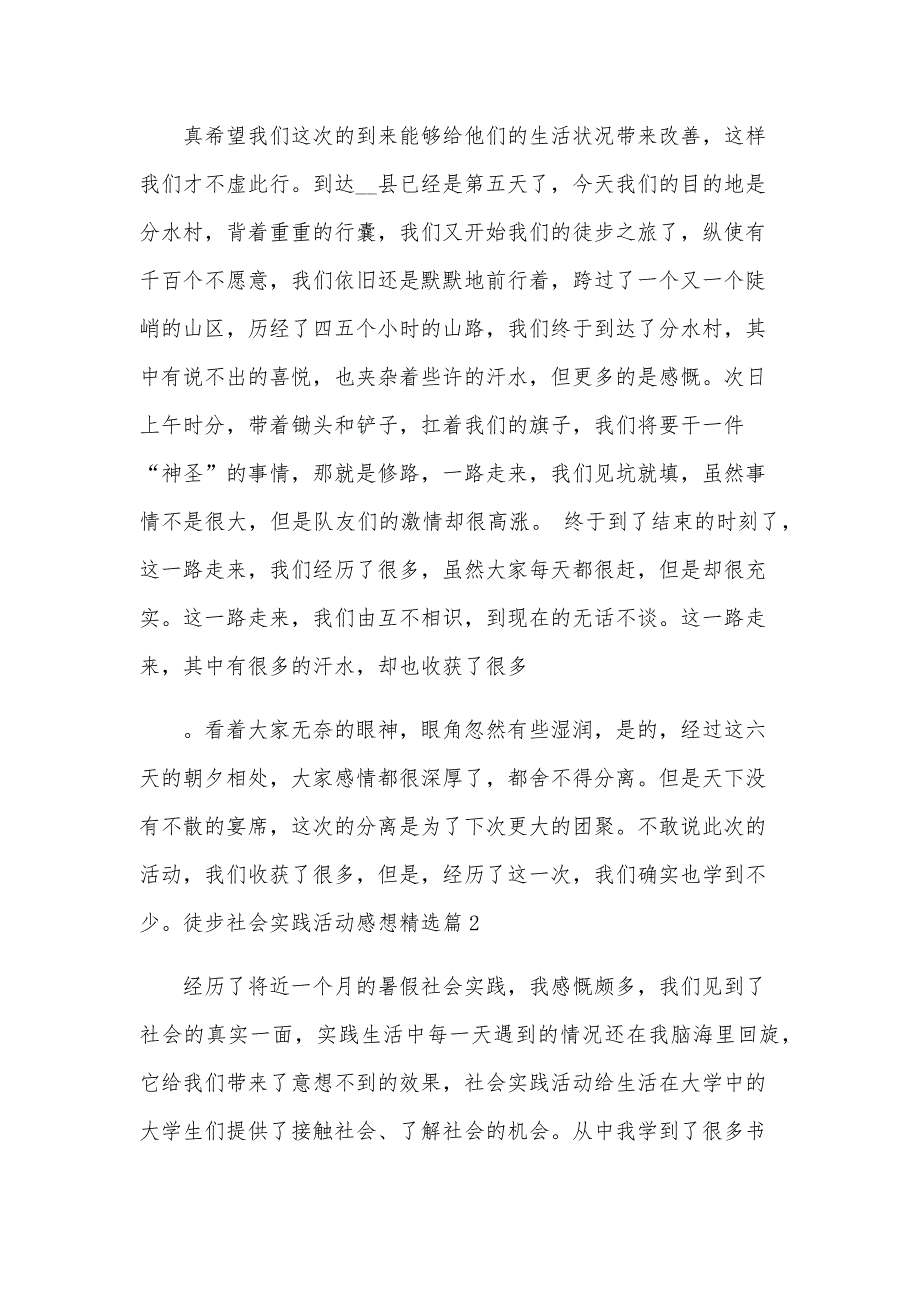 真希望我们这次的到来能够给他们的生活状况带来改善，这样
我们才不虚此行。到达__县已经是第五天了，今天我们的目的地是
分水村，背着重重的行囊，我们又开始我们的徒步之旅了，纵使有
千百个不愿意，我们依旧还是默默地前行着，跨过了一个又一个陡
峭的山区，历经了四五个小时的山路，我们终于到达了分水村，其
中有说不出的喜悦，也夹杂着些许的汗水，但更多的是感慨。次日
上午时分，带着锄头和铲子，扛着我们的旗子，我们将要干一件
“神圣”的事情，那就是修路，一路走来，我们见坑就填，虽然事
情不是很大，但是队友们的激情却很高涨。 终于到了结束的时刻了，
这一路走来，我们经历了很多，虽然大家每天都很赶，但是却很充
实。这一路走来，我们由互不相识，到现在的无话不谈。这一路走
来，其中有很多的汗水，却也收获了很多
。看着大家无奈的眼神，眼角忽然有些湿润，是的，经过这六
天的朝夕相处，大家感情都很深厚了，都舍不得分离。但是天下没
有不散的宴席，这次的分离是为了下次更大的团聚。不敢说此次的
活动，我们收获了很多，但是，经历了这一次，我们确实也学到不
少。徒步社会实践活动感想精选篇2
经历了将近一个月的暑假社会实践，我感慨颇多，我们见到了
社会的真实一面，实践生活中每一天遇到的情况还在我脑海里回旋，
它给我们带来了意想不到的效果，社会实践活动给生活在大学中的
大学生们提供了接触社会、了解社会的机会。从中我学到了很多书